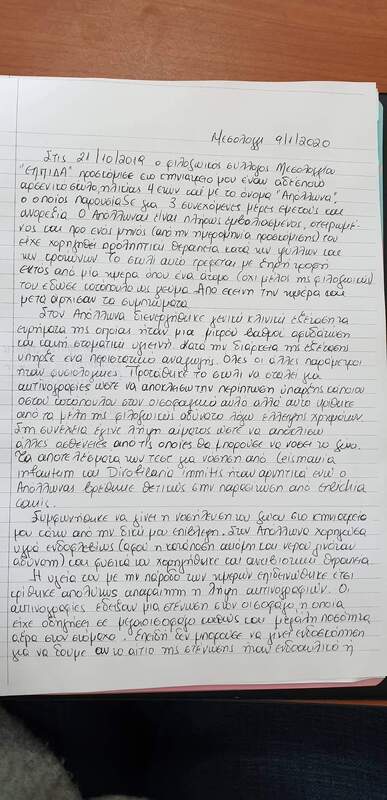 Μεσολόγγι 9/1/2020
Στις 21/10/2019 ο φιλοζωικός σύλλογος Μεσολογγίου
"ΕΛΠΙΔΑ" προσκόμισε στο κτηνιατρείο μου έναν αδέσποτο
αρσενικό σκύλο, ηλικίας 4 ετών και με το όνομα "Απόλλωνα",
ο οποίος παρουσίαζε για 3 συνεχόμενες μέρες εμετούς και
ανορεξία. Ο Απόλλωνας είναι πλήρως εμβολιασμένος, στειρωμέ-
νος και προ ενός μηνός (από την ημερομηνία προσκόμισης) του
είχε χορηγηθεί προληπτική θεραπεία κατά των ψύλλων και
των κροτώνων. Το σκυλί αυτό τρέφεται με ξηρή τροφή
εκτός από μία ημέρα όπου ένα άτομο (όχι μέλος της φιλοζωικής)
του έδωσε κοτόπουλο ως γεύμα. Από εκείνη την ημέρα και
μετά άρχισαν τα συμπτώματα.
Στον Απόλλωνα διενεργήθηκε γενική κλινική εξέταση τα
ευρήματα της οποίας ήταν μια μικρού βαθμού αφυδάτωση
και κακή στοματική υγιεινή. Κατά την διάρκεια της εξέτασης
υπήρξε ένα περιστατικό αναγωγής. Όλες οι άλλες παράμετροι
ήταν φυσιολογικές. Προτάθηκε το σκυλί να σταλεί για
ακτινογραφίες ώστε να αποκλειστή την περίπτωση ύπαρξης κάποιου
οστού κοτόπουλου στον οισοφαγικό αυλό αλλά αυτό κρίθηκε
από τα μέλη της φιλοζωικής αδύνατο λόγω έλλειψης χρημάτων.
Στη συνέχεια έγινε λήψη αίματος ώστε να αποκλειστούν
άλλες ασθένειες από τις οποίες θα μπορούσε να νοσεί το ζώο.
Τα αποτελέσματα των τεστ για νόσηση από Leismania
infantum και Dirofilaria immitis ήταν αρνητικά ενώ ο
Απόλλωνας βρέθηκε θετικός στην παρασίτωση από Erlichia
canis.
Συμφωνήθηκε να γίνει η νοσήλευση του ζώου στο κτηνιατρείο
μου κάτω από την δική μου επίβλεψη. Στον Απόλλωνα χορηγήθηκαν
υγρά ενδοφλεβίως (αφού η κατάποση ακόμη και νερού γινόταν
αδύνατη) και φυσικά του χορηγήθηκε και αντιβιοτική θεραπεία.
Η υγεία του με την πάροδο των ημερών επιδεινώθηκε έτσι
κρίθηκε απολύτως απαραίτητη η λήψη ακτινογραφιών. Οι
ακτινογραφίες έδειξαν μια στένωση στον οισοφάγο, η οποία
είχε οδηγήσει σε μεγαοισοφάγο καθώς και μεγάλη ποσότητα
αέρα στον στόμαχο. Επειδή δεν μπορούσε να γίνει ενδοσκόπηση
για να δούμε αν το αίτιο της στένωσης ήταν ενδοαυλικό ή